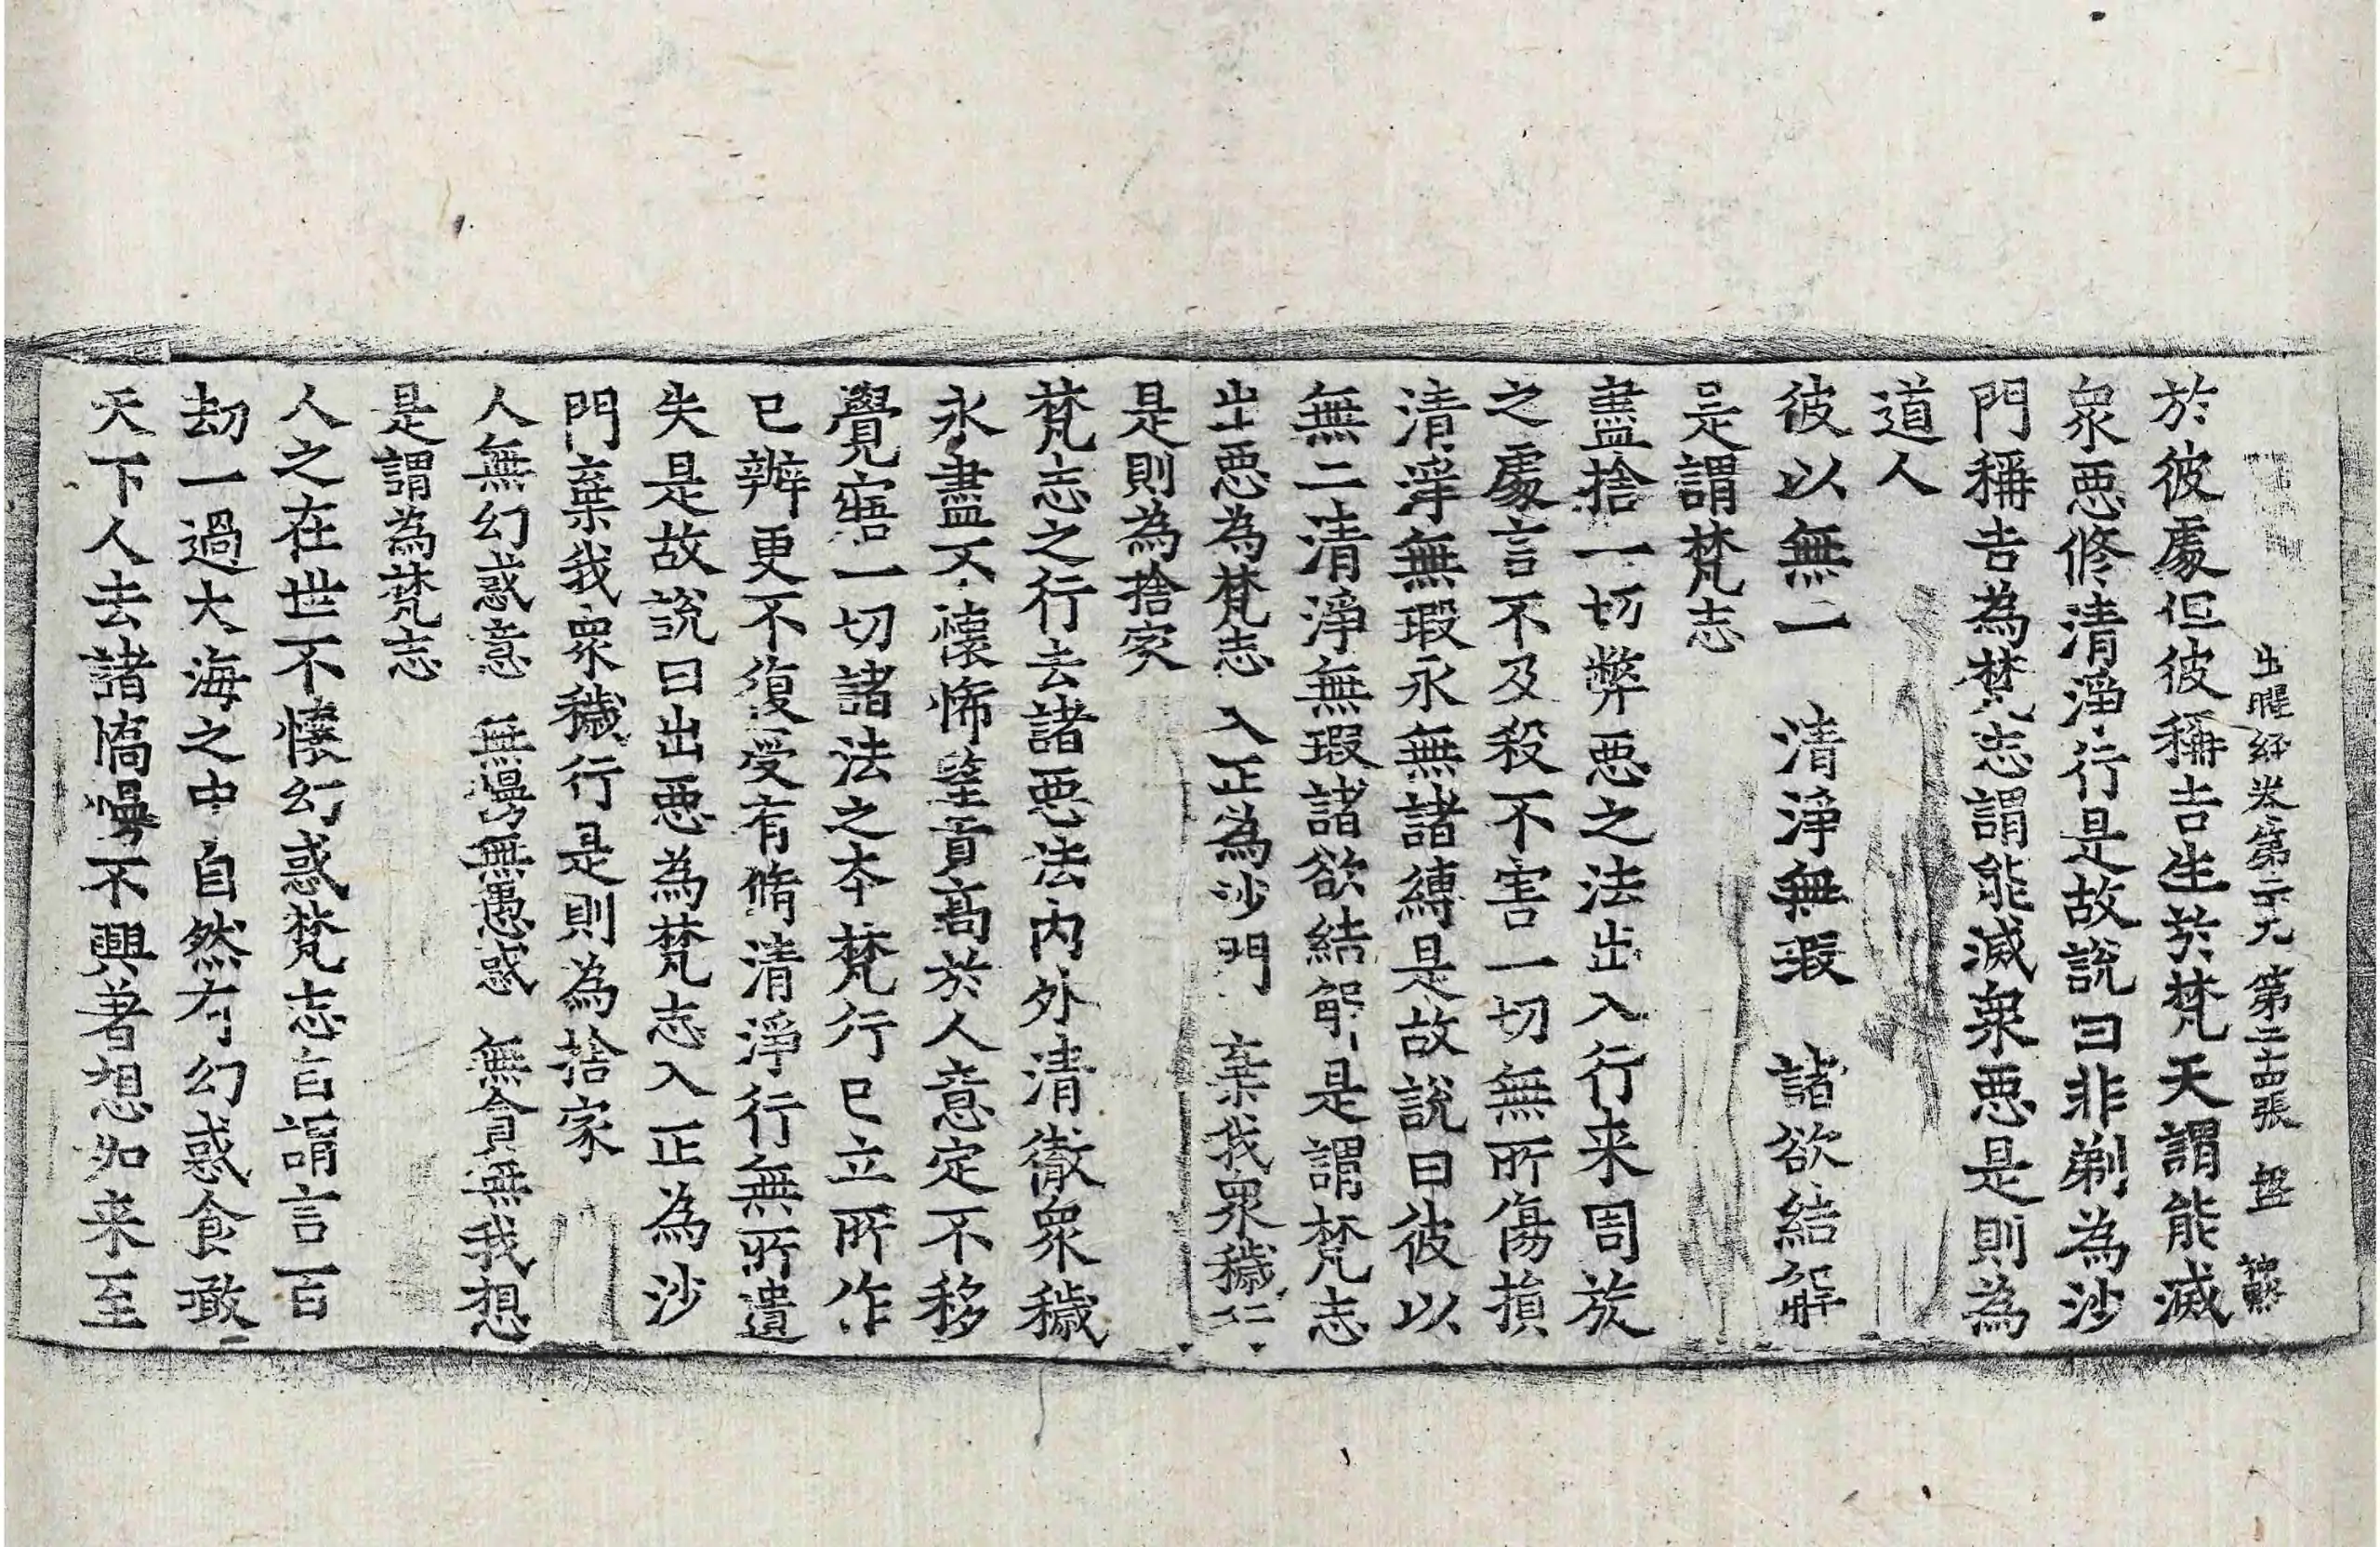 出曜經卷第二十九 第二十四張 盤
於彼處但彼稱吉生於梵天謂能滅
衆惡修清淨行是故說曰非剃為沙
門稱吉為梵志謂能滅衆惡是則為
道人
彼以無二 清淨無瑕 諸欲結解
是謂梵志
盡捨一切弊惡之法出入行来周旋
之處言不及殺不害一切無所傷損
清淨無瑕永無諸縛是故說曰彼以
無二清淨無瑕諸欲結解是謂梵志
出惡為梵志 入正為沙門 棄我衆穢行
是則為捨家
梵志之行去諸惡法内外清徹衆穢
永盡不懷悕望貢高於人意定不移
覺寤一切諸法之本梵行已立所作
已辦更不復受有脩清淨行無所遺
失是故說曰出惡為梵志入正為沙
門棄我衆穢行是則為捨家
人無幻惑意 無慢無愚惑 無貪無我想
是謂為梵志
人之在世不懷幻惑梵志自謂言百
劫一過大海之中自然有幻惑食噉
天下人去諸憍慢不興著想如来至